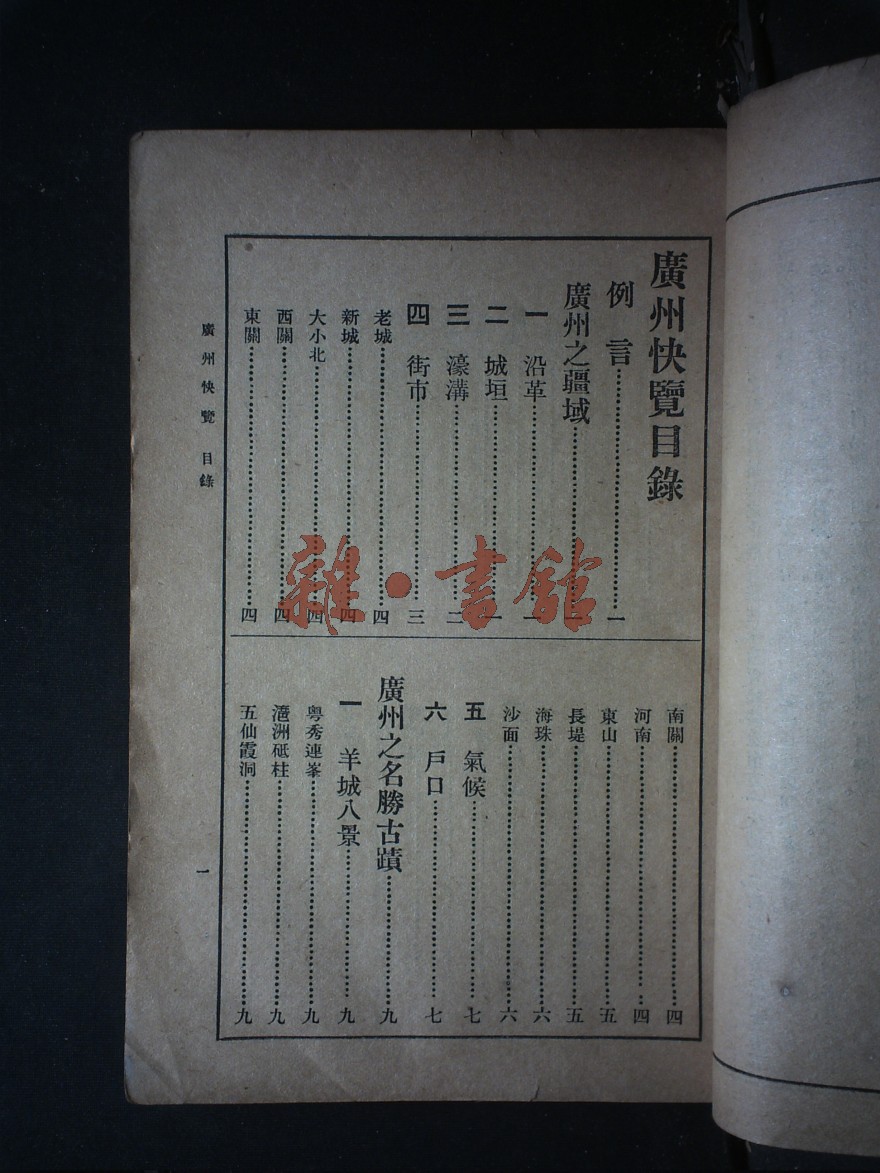 廣州快覽目錄
例言……一
廣州之疆域……一
一 沿革……一
二 城垣……一
三 濠溝……二
四 街市……三
老城……四
新城……四
大小北……四
西關……四
東關……四
南關……四
河南……四
東山……五
長堤……五
海珠……六
沙面……六
五 氣候……七
六 戶口……七
廣州之名勝古蹟……九
一 羊城八景……九
粵秀連峯……九
滬洲砥柱……九
五仙霞洞……九
廣州快覽 目錄
一
雜·書館